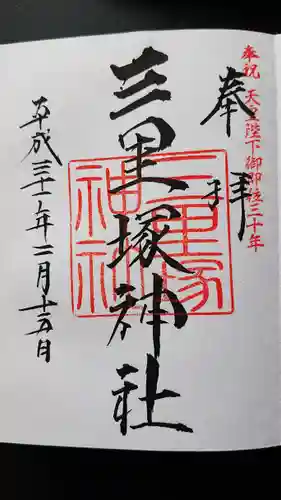 奉祝 天皇陛下御即位三十年
奉拝
三里塚神社
三里塚
神社
平成三十一年二月十五日